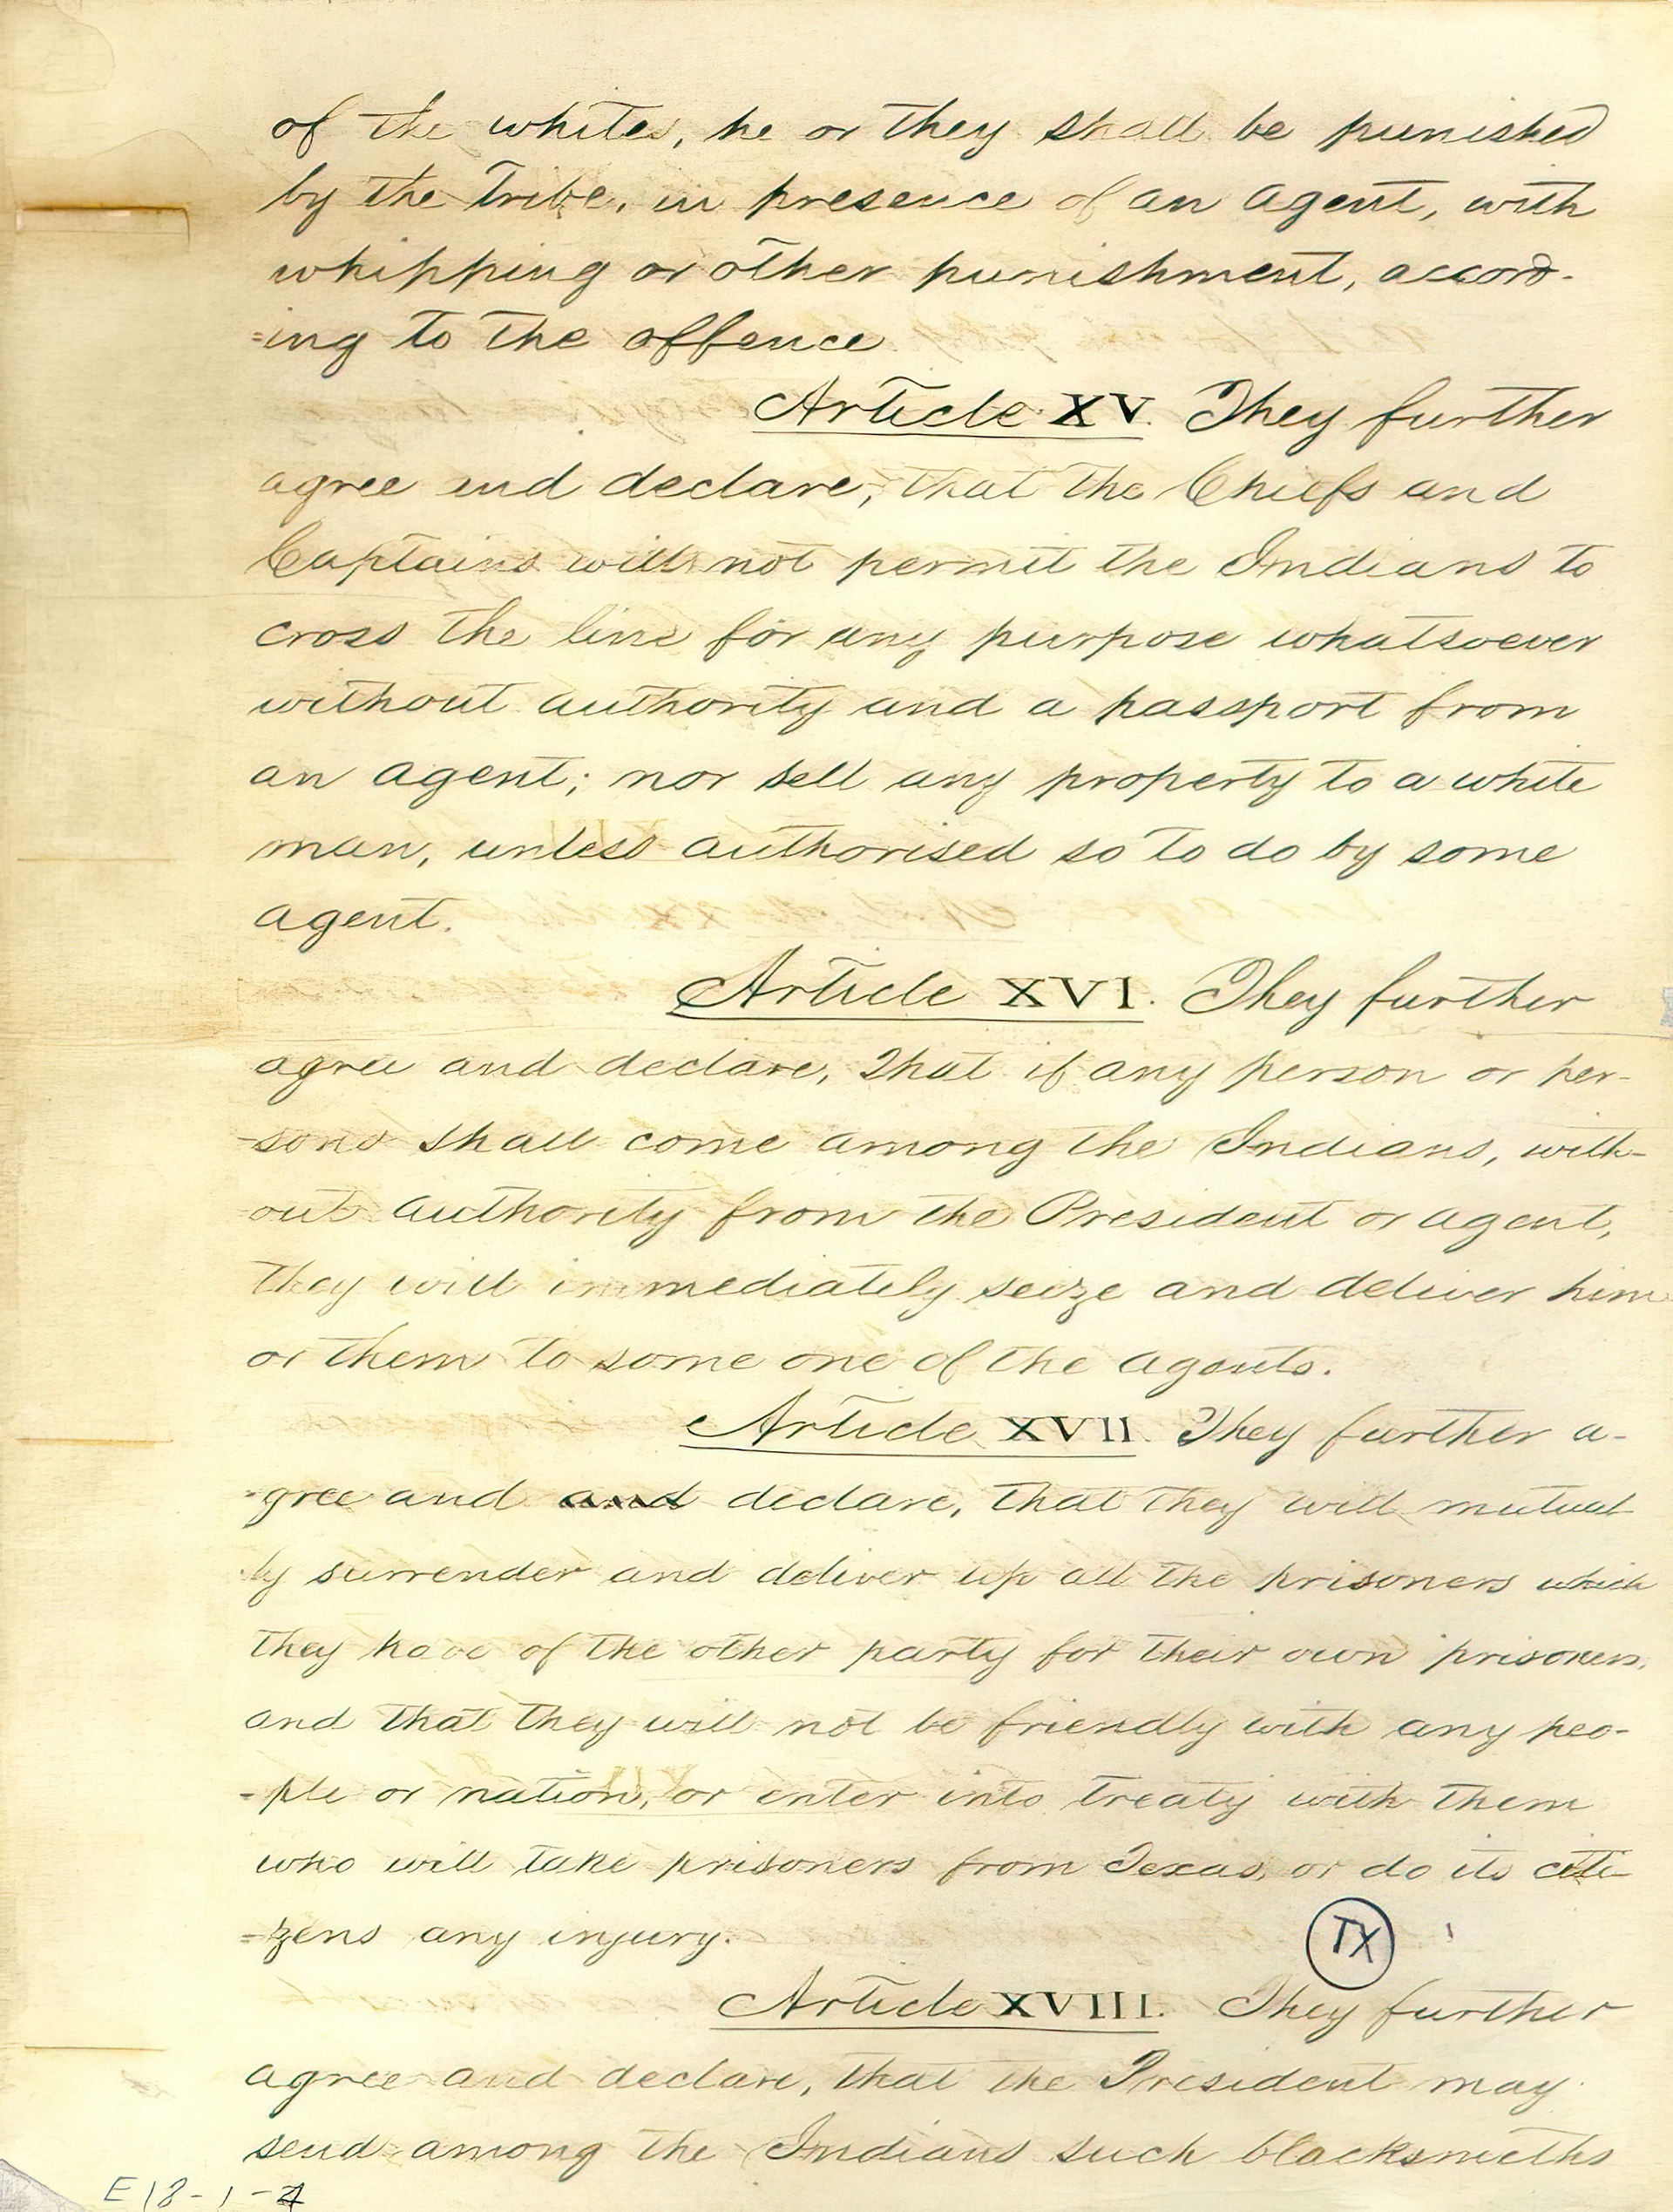 of the whites, he or they shall be punished
by the Tribe, in presence of an agent, with
whipping or other punishment, accord-
=ing to the offence
Article XV. They further
agree and declare, that the Chiefs and
Captains will not permit the Indians to
cross the line for any purpose whatsoever
without authority and a passport from
an agent; nor sell any property to a white
man, unless authorised so to do by some
agent.
Article XVI. They further
agree and declare, that if any person or per-
-sons shall come among the Indians, with-
out authority from the President or agent,
they will immediately seize and deliver him
or them to some one of the agents.
Article XVII. They further a-
-gree and and declare, that they will mutual
ly surrender and deliver up all the prisoners which
they have of the other party for their own prisoners,
and that they will not be friendly with any peo-
-ple or nation, or enter into treaty with them
who will take prisoners from Texas, or do its citi-
=zens any injury.
TX
Article XVIII. They further
agree and declare, that the President may
send among the Indians such blacksmiths
E18-1-4